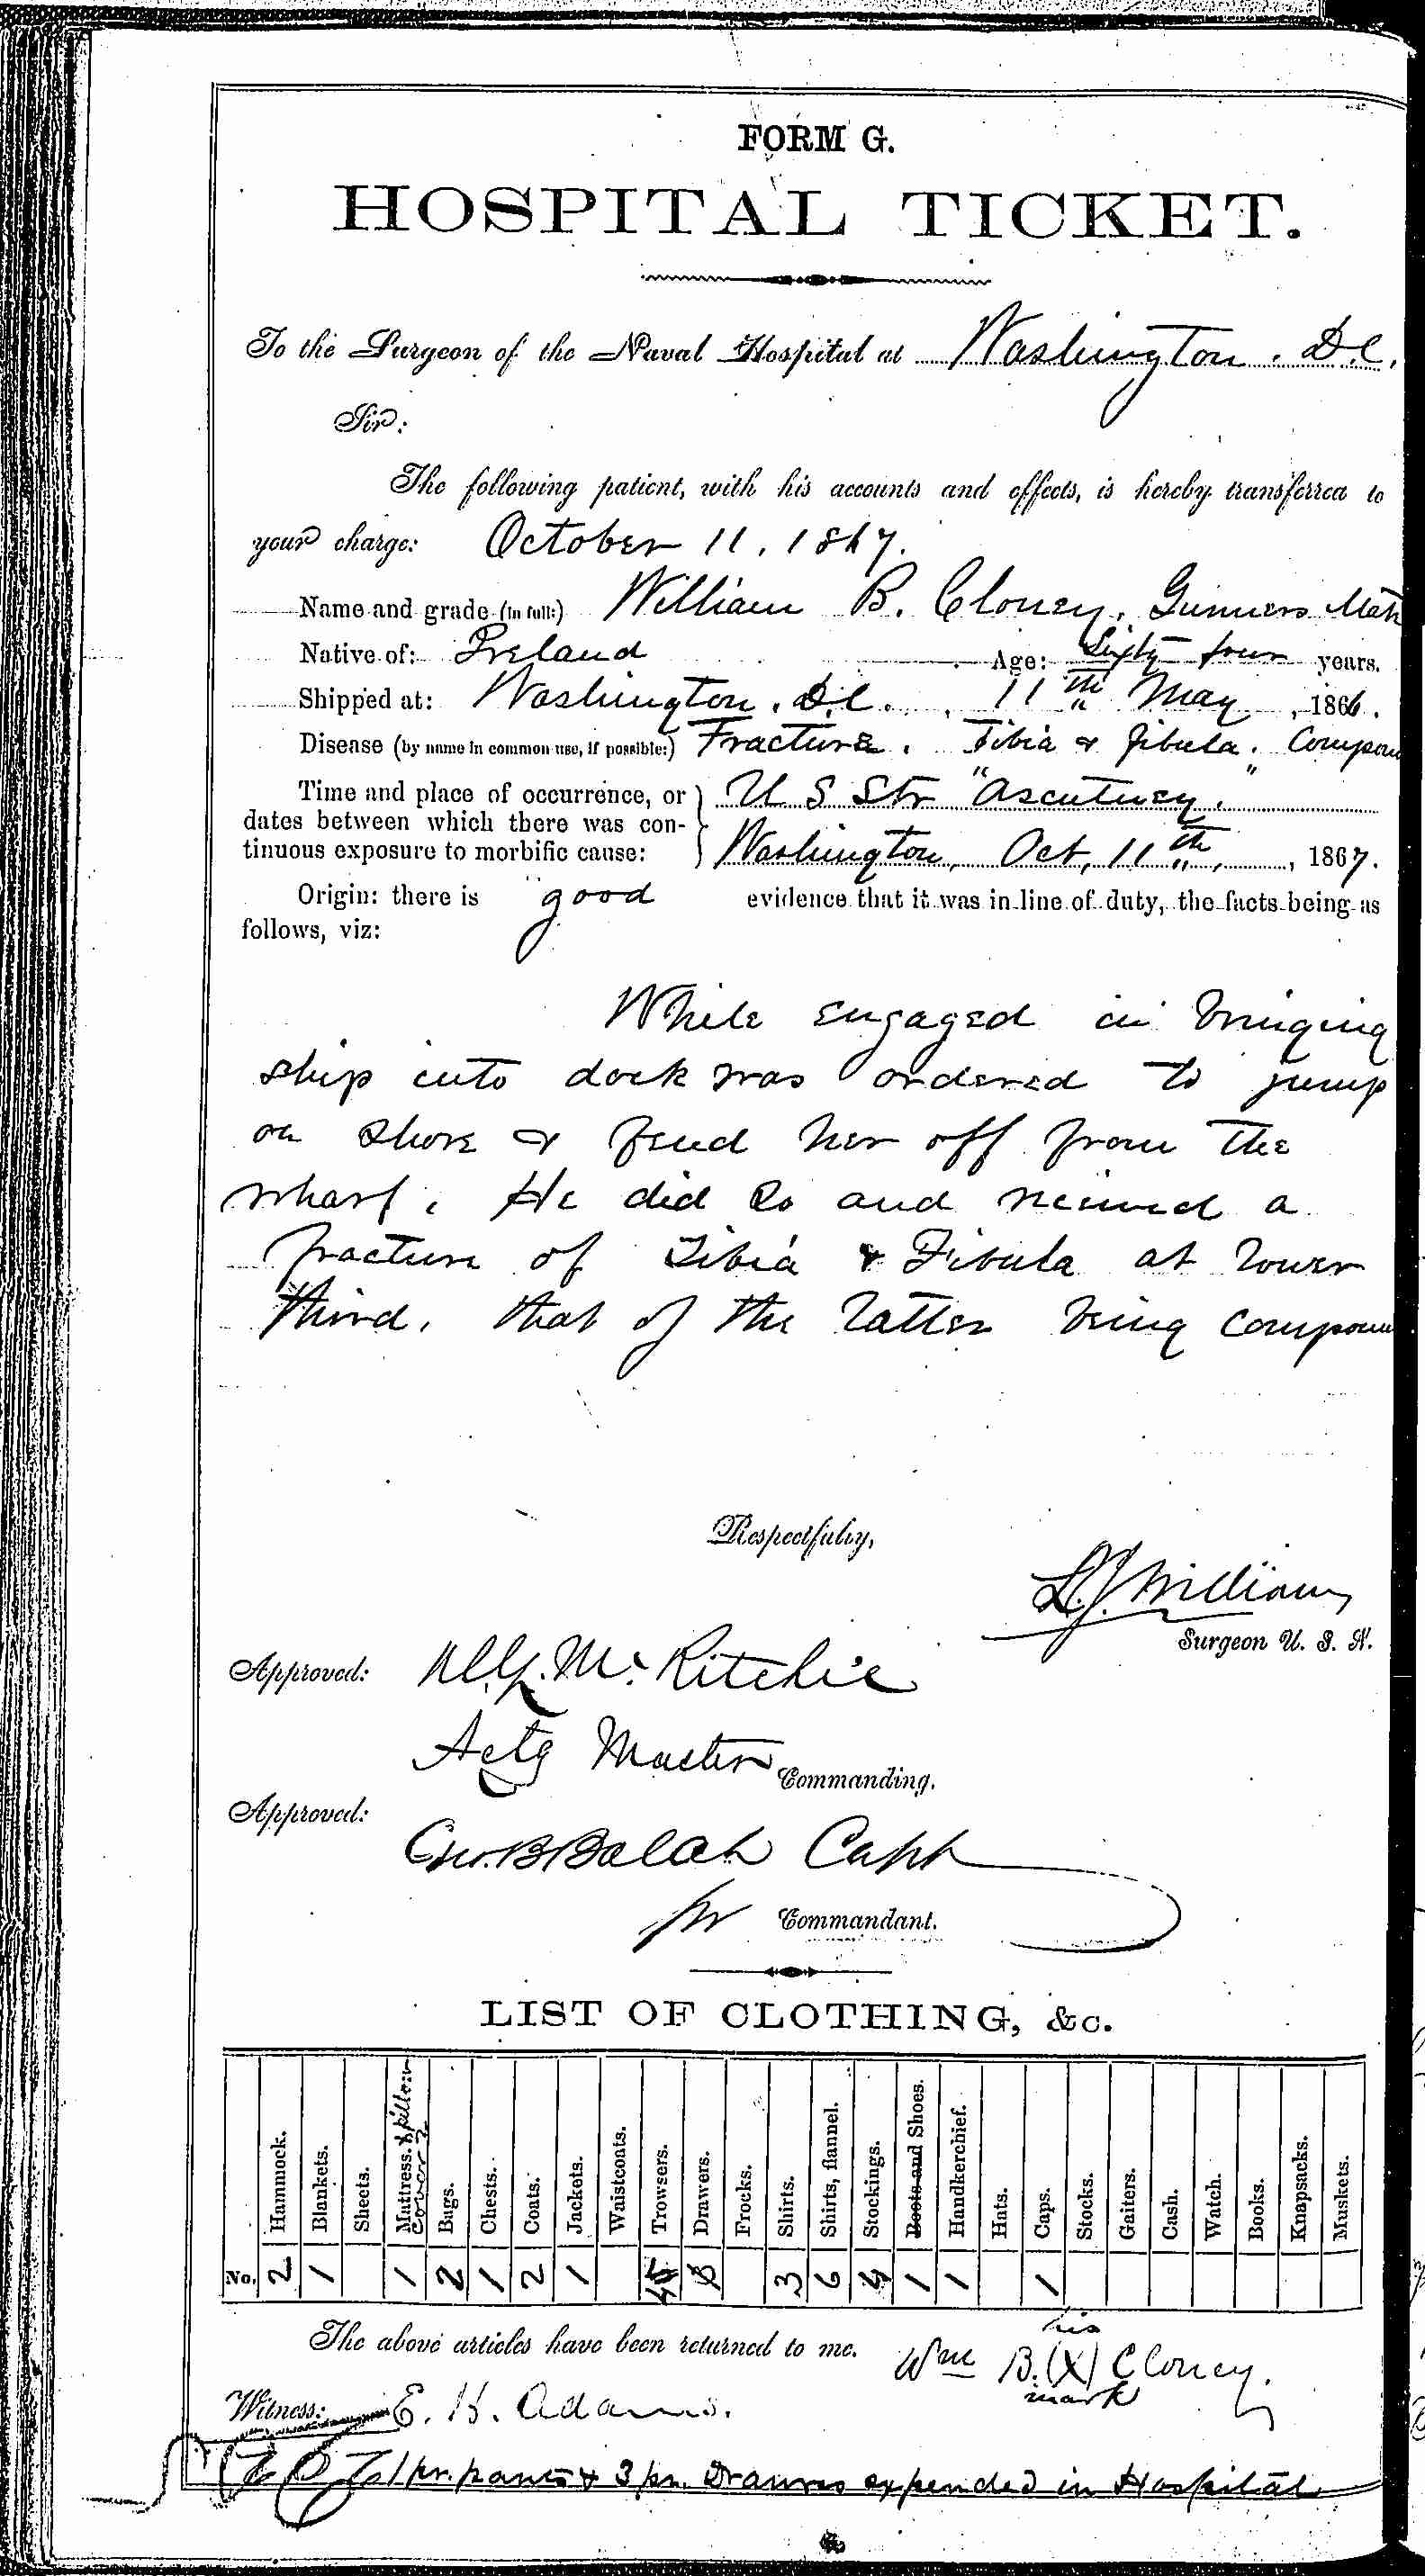 FORM G.
HOSPITAL TICKET.
To the Surgeon of the Naval Hospital at Washington. D.C.
Sir:
The following patient, with his accounts and effects, is hereby transferred to
your charge: October 11, 1867.
Name and grade (in full:) William B. Cloney, Gunners Mate
Native of: Ireland Age: Sixty four years.
Shipped at: Washington, D.C. 11th May, 1866.
Disease (by name in common use, if possible:) Fracture. Tibia & fibula. Compou
Time and place of occurrence, or U S Str "Ascutney,"
dates between which there was con-
tinuous exposure to morbific cause: Washington, Oct, 11th, 1867.
Origin: there is good evidence that it was in line of duty, the facts being as
follows, viz:
While engaged in bringing
ship into dock was ordered to jump
on shore & fend her off from the
wharf. He did so and received a
fracture of Tibia & Fibula at lower
third, that of the latter being compoun
Respectfully,
L.J. Williams
Surgeon U. S. N.
Approved: McRitchie
Actg Master Commanding.
Approved:
Geo. B Balch Capt
for Commandant.
LIST OF CLOTHING, &c.
Hammock. Blankets. Sheets. Mattress. & pillow cover 2 Bags. Chests. Coats. Jackets. Waistcoats. Trowsers. Drawers. Frocks. Shirts. Shirts, flannel. Stockings. Boots and Shoes. Handkerchief. Hats. Caps. Stocks. Gaiters. Cash. Watch. Books. Knapsacks. Muskets.
No. 2 1 1 2 1 2 1 3 6 4 1 1 1
The above articles have been returned to me. Wm B. (X) Cloney.
his
mark
Witness: E. H. Adams.
1 pr. pants & 3 pr. Drawers expended in Hospital